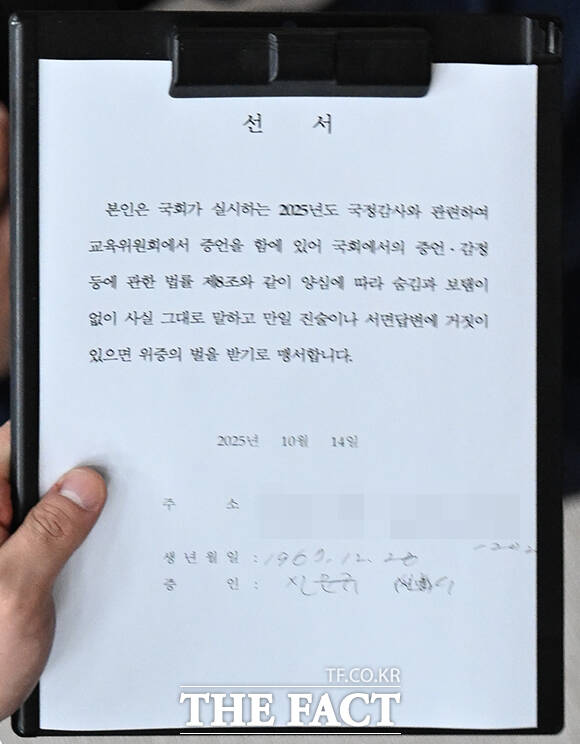 선 서
본인은 국회가 실시하는 2025년도 국정감사와 관련하여
교육위원회에서 증언을 함에 있어 국회에서의 증언·감정
등에 관한 법률 제8조와 같이 양심에 따라 숨김과 보탬이
없이 사실 그대로 말하고 만일 진술이나 서면답변에 거짓이
있으면 위증의 벌을 받기로 맹서합니다.
2025년 10월 14일
주 소
생년월일 :
증 인 :
TF.CO.KR
THE FACT